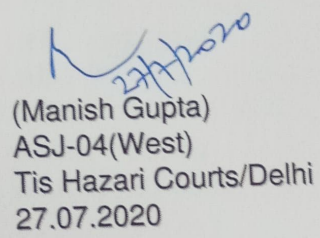 27/7/2020
(Manish Gupta)
ASJ-04(West)
Tis Hazari Courts/Delhi
27.07.2020